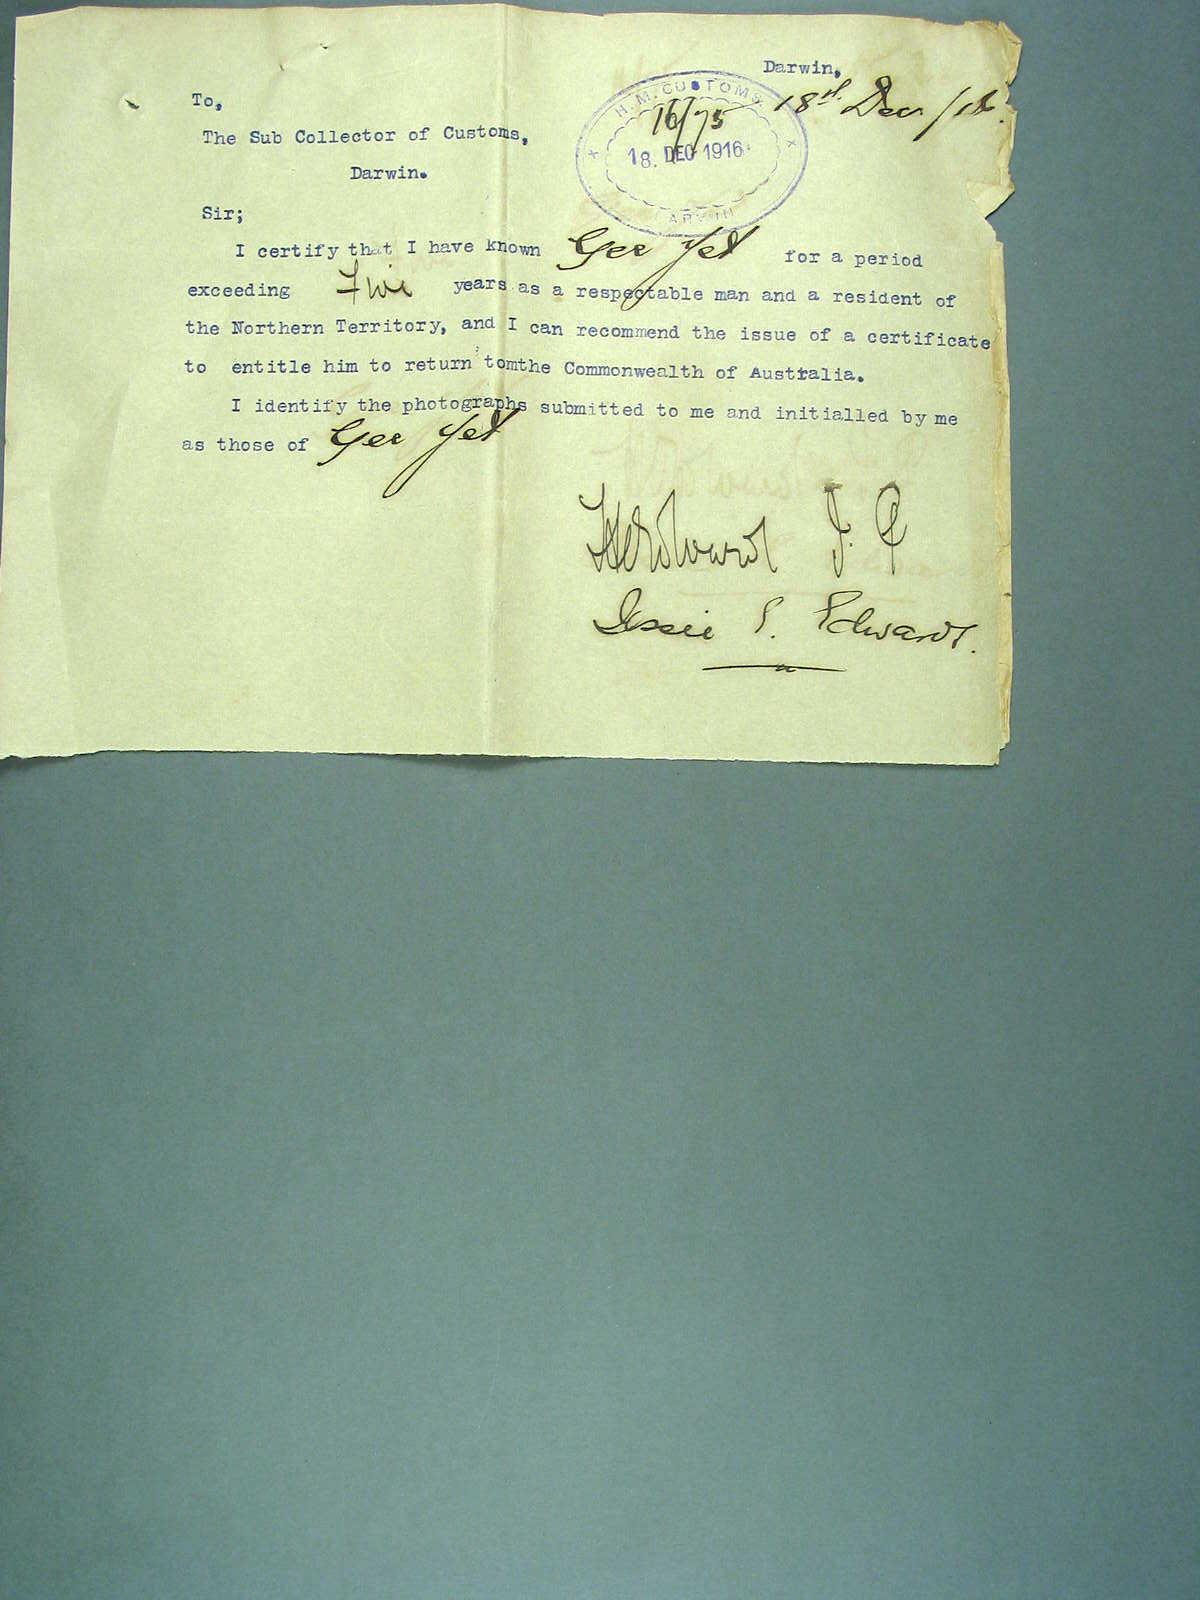 Darwin,
18th Dec /16.
H.M. CUSTOMS.
16/75
18. DEC 1916
DARWIN
To,
The Sub Collector of Customs,
Darwin.
Sir;
I certify that I have known Gee Yet for a period
exceeding Five years as a respectable man and a resident of
the Northern Territory, and I can recommend the issue of a certificate
to entitle him to return tomthe Commonwealth of Australia.
I identify the photographs submitted to me and initialled by me
as those of Gee Yet
Edwards J.P
Jessie S. Edwards.